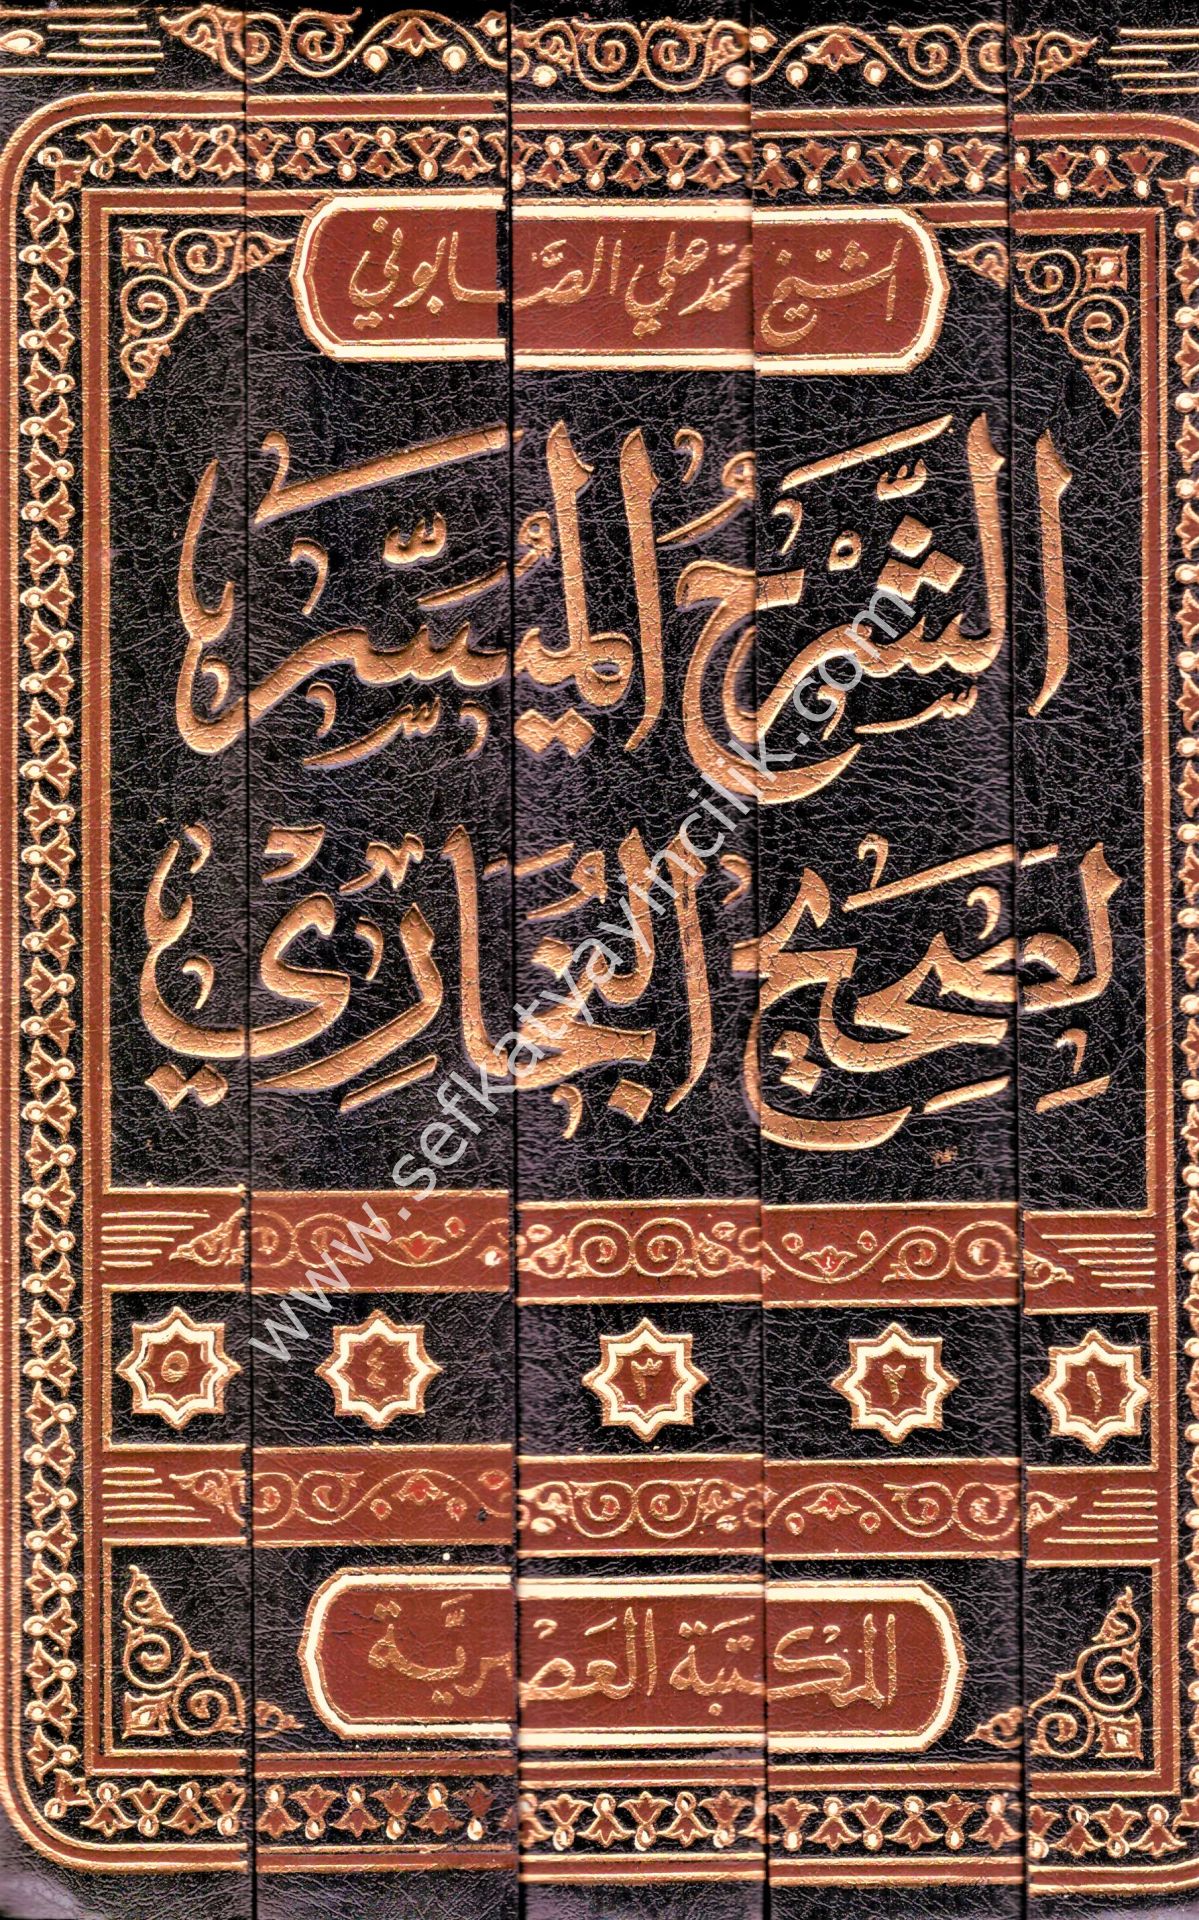 الشيخ محمد علي الصَّابوني
الشَّرْحُ المُيَسَّر
لِصَحِيحِ البُخَارِيِّ
١ ٢ ٣ ٤ ٥
المكتبة العَصْريَّة
www.sefkatyayincilik.com